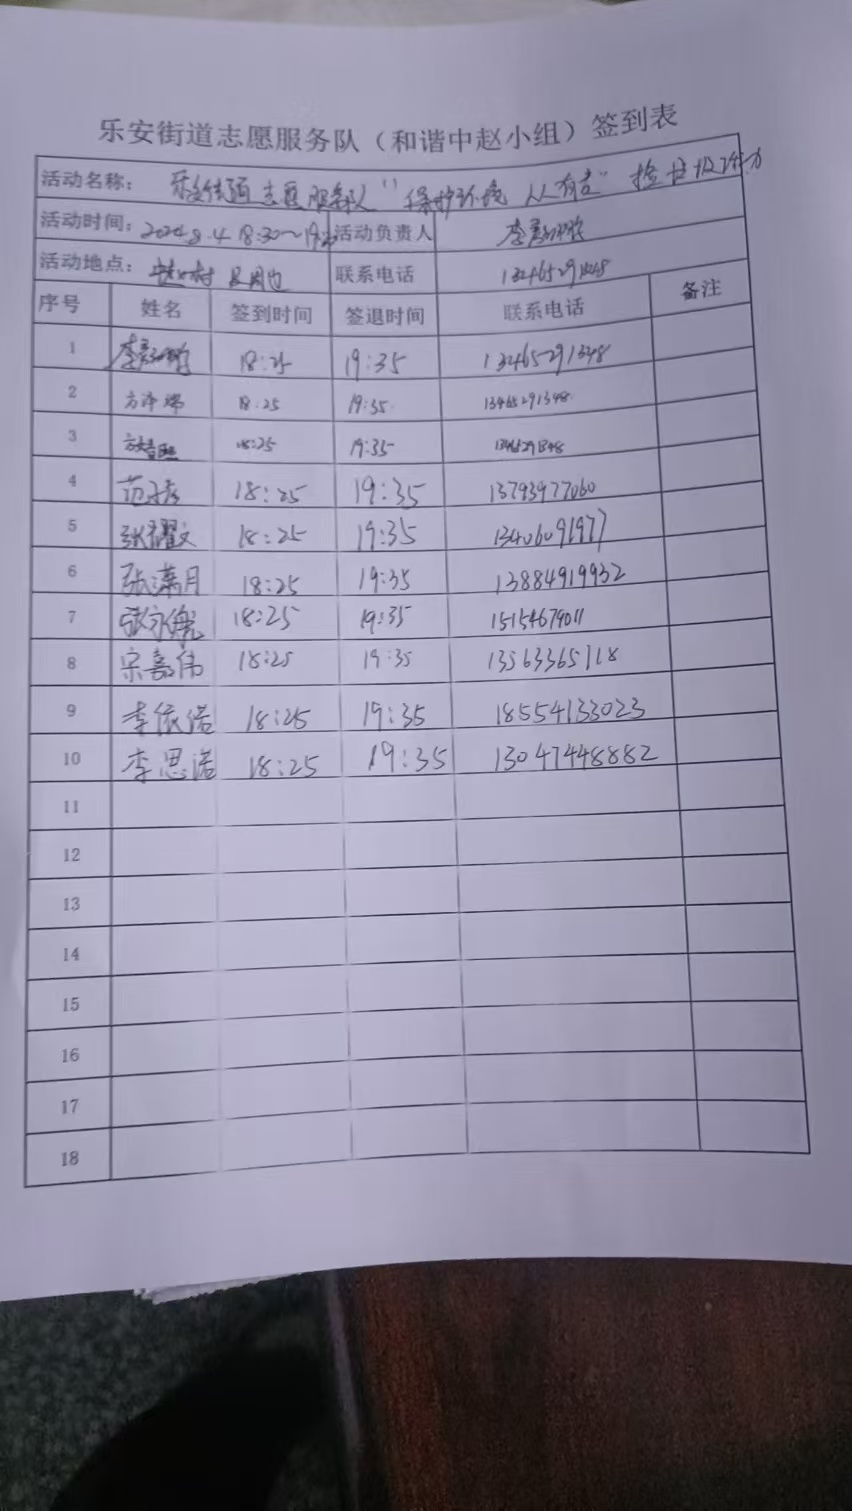 乐安街道志愿服务队（和谐中赵小组）签到表
活动名称： 乐安街道志愿服务队"保护环境 人人有责" 捡垃圾活动
活动时间： 2024.8.4 18:30～19:30 活动负责人 李
活动地点： 赵村及周边 联系电话 13465291348
序号 姓名 签到时间 签退时间 联系电话 备注
1 李 18:25 19:35 13465291348
2 方泽 18:25 19:35 13465291348
3 18:25 19:35 13465291348
4 范 18:25 19:35 13793977060
5 张耀文 18:25 19:35 13406091977
6 张潇月 18:25 19:35 13884919932
7 张永 18:25 19:35 15154679011
8 宋嘉伟 18:25 19:35 13563365118
9 李依诺 18:25 19:35 18554133023
10 李思诺 18:25 19:35 13047448882
11
12
13
14
15
16
17
18